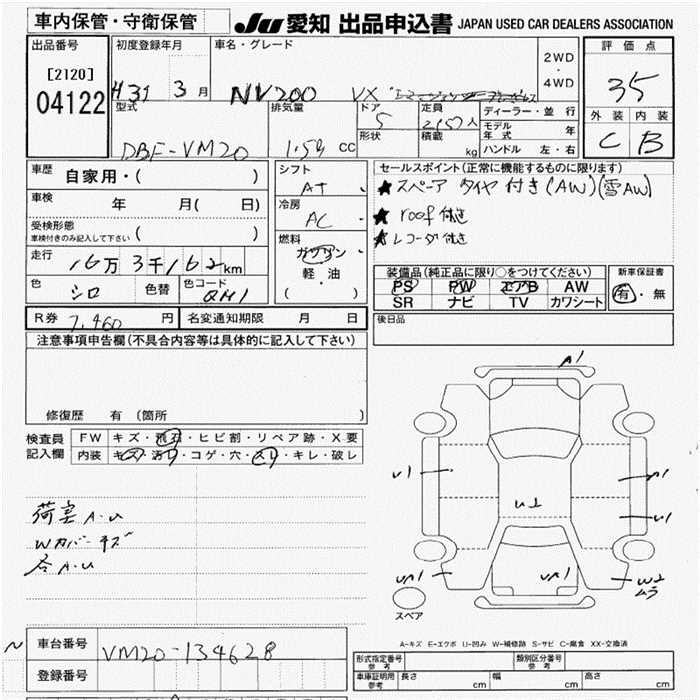 車内保管・守衛保管
JU 愛知 出品申込書 JAPAN USED CAR DEALERS ASSOCIATION
出品番号
[2120]
04122
初度登録年月
H31 3月
車名・グレード
NV200 VX
2WD
・
4WD
評価点
3.5
外装 内装
C B
型式
DBF-VM20
排気量
1.59 CC
ドア
5
形状
定員
2(5)人
積載
kg
ディーラー・並行
モデル年式 年
ハンドル 左・右
車歴 自家用・( )
車検 年 月( 日)
受検形態
(車検付きのみ記入して下さい)
走行
16万3千162km
色 シロ 色替 色コード QM1
シフト
AT
冷房
AC
燃料
ガソリン
軽・油
( )
セールスポイント(正常に機能するものに限ります)
★ スペーア タイヤ 付き(AW)(雪AW)
★ roof 付き
★ レコーダ 付き
装備品(純正品に限り○をつけてください)
PS PW エアB AW
SR ナビ TV カワシート
新車保証書
有・無
R券 7,460 円 名変通知期限 月 日
後日品
注意事項申告欄(不具合内容等は具体的に記入して下さい)
修復歴 有(箇所 )
検査員記入欄
FW キズ・飛石・ヒビ割・リペア跡・X要
内装 キズ・汚れ・コゲ・穴・スリ・キレ・破レ
荷室 A.U
Wカバーキズ
各A.U
A1
U1
U1
U1
W2
ムラ
スペア
A-キズ E-エクボ U-凹み W-補修跡 S-サビ C-腐食 XX-交換済
車台番号 VM20-134628
登録番号
形式指定番号 参考
類別区分番号 参考
車庫証明用 参考 長さ cm 幅 cm 高さ cm